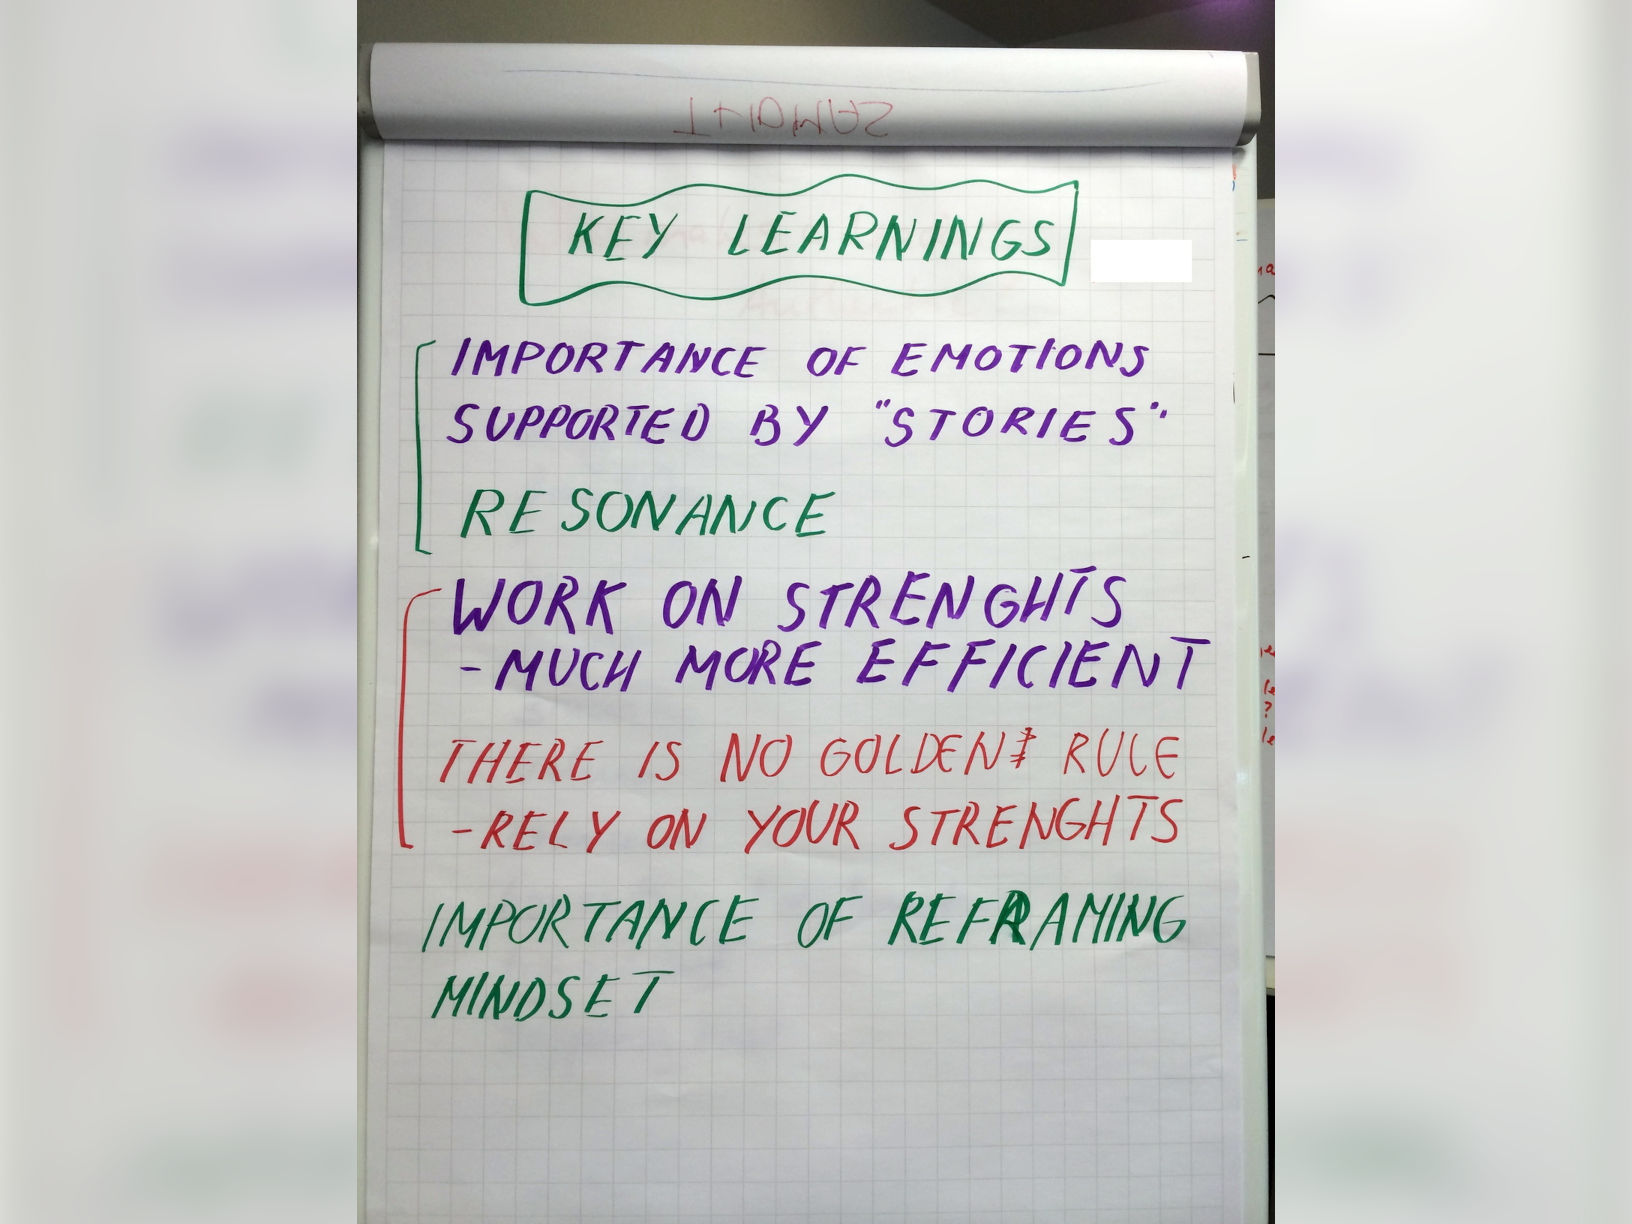 KEY LEARNINGS
IMPORTANCE OF EMOTIONS
SUPPORTED BY "STORIES"
RESONANCE
WORK ON STRENGHTS
- MUCH MORE EFFICIENT
THERE IS NO GOLDEN RULE
- RELY ON YOUR STRENGHTS
IMPORTANCE OF REFRAMING
MINDSET